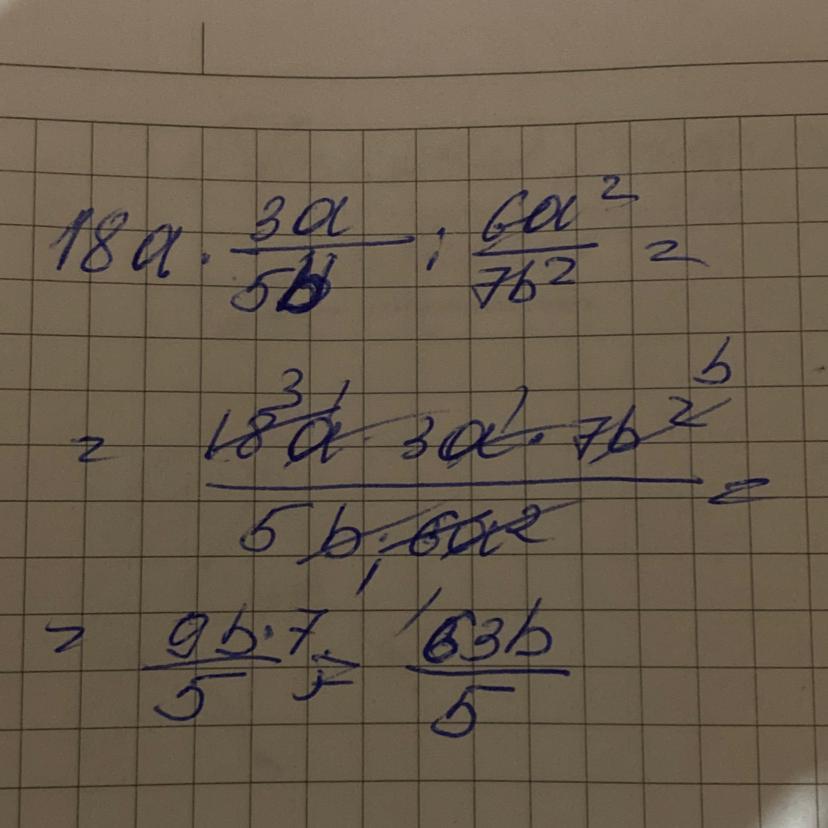 18a · 3a/5b : 6a²/7b² =
= 18³a¹ · 3a¹ · 7b² b / 5b · 6a² =
1 1
= 9b·7/5 = 63b/5